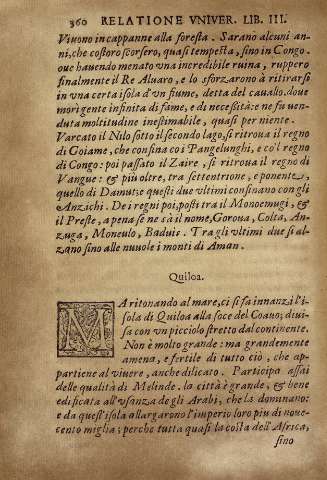 360 RELATIONE VNIVER. LIB. III.
Viuono in cappanne alla foresta. Sarano alcuni an-
ni, che costoro scorsero, quasi tempesta, sino in Congo.
oue hauendo menato vna incredibile ruina, ruppero
finalmente il Re Aluaro, e lo sforzarono à ritirarsi
in vna certa isola d'vn fiume, detta del cauallo. doue
morì gente infinita di fame, e di necessità: e ne fu uen-
duta moltitudine inestimabile, quasi per niente.
Varcato il Nilo sotto il secondo lago, si ritroua il regno
di Goiame, che confina coi Pangelunghi, e co'l regno
di Congo: poi passato il Zaire, si ritroua il regno di
Vangue: & più oltre, tra settentrione, e ponente,
quello di Damut: e questi due vltimi confinano con gli
Anzichi. De i regni poi, posti tra il Monoemugi, &
il Preste, a pena se ne sà il nome, Goroua, Colta, An-
zuga, Moneulo, Baduis. Tra gli vltimi due si al-
zano sino alle nuuole i monti di Aman.
Quiloa.
MA ritonando al mare, ci si fa innanzi l'i-
sola di Quiloa alla foce del Coauo; diui-
sa con vn picciolo stretto dal continente.
Non è molto grande: ma grandemente
amena, e fertile di tutto ciò, che ap-
partiene al viuere, anche dilicato. Participa assai
delle qualità di Melinde. la città è grande, & bene
edificata all'vsanza de gli Arabi, che la dominano:
e da quest'isola allargarono l'imperio loro piu di noue-
cento miglia; perche tutta quasi la costa dell'Africa,
sino